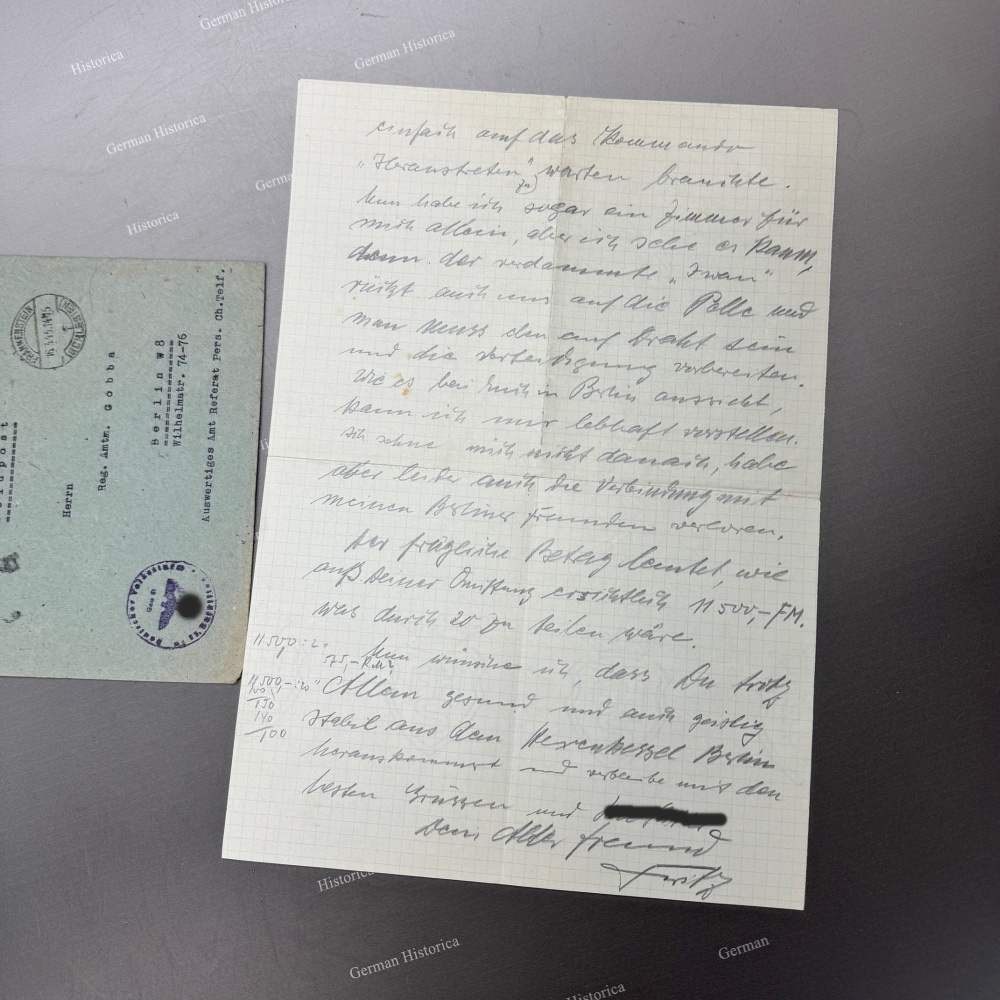 einfach auf das Kommando
„Heraustreten" zu warten brauchte.
Nun habe ich sogar ein Zimmer für
mich allein, aber ich sehe es kaum,
denn der verdammte „Iwan"
rückt auch uns auf die Pelle und
man muss eben auf Draht sein
und die Verteidigung vorbereiten.
Wie es bei Euch in Berlin aussieht,
kann ich mir lebhaft vorstellen.
Ich sehne mich nicht danach, habe
aber leider auch die Verbindung mit
meinen Berliner Freunden verloren.
Der fragliche Betrag lautet, wie
aus Deiner Quittung ersichtlich 11500,- FM.
was durch 20 zu teilen wäre.
Nun wünsche ich, dass Du trotz
Allem gesund und auch geistig
stabil aus dem Hexenkessel Berlin
herauskommst und verbleibe mit den
besten Grüssen und
Dein Alter Freund
Fritz
11500:2
75,- RM
11500-:20
150
140
100
FRANKENSTEIN
Feldpost
Herrn
Reg. Amtm. G ö b b a
B e r l i n W 8
Wilhelmstr. 74-76
Auswertiges Amt Referat Pers. Ch.Telf.
Deutscher Volkssturm
German Historica
Historica
German Historica
German Historica
Historica
German
Historica
German Historica
German
Historica